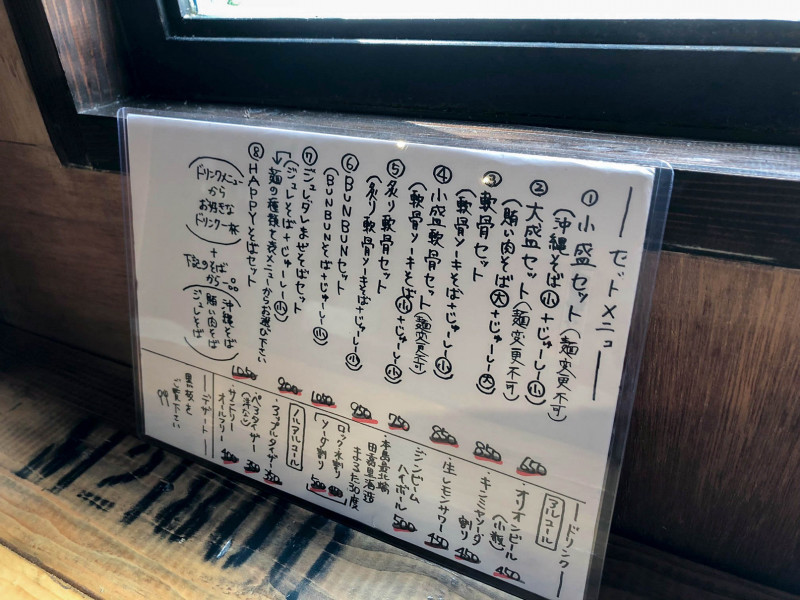 セットメニュー
① 小盛セット(麺変更不可)
(沖縄そば小+じゅーしー小)
650
② 大盛セット(麺変更不可)
(賄い肉そば大+じゅーしー大)
850
③ 軟骨セット
(軟骨ソーキそば+じゅーしー小)
850
④ 小盛軟骨セット(麺変更不可)
(軟骨ソーキそば小+じゅーしー小)
750
⑤ 炙り軟骨セット
(炙り軟骨ソーキそば+じゅーしー小)
950
⑥ BUNBUNセット
(BUNBUNそば+じゅーしー小)
1050
⑦ ジュレダレまぜそばセット
(ジュレそば+じゅーしー小)
900
麺の種類を表メニューからお選び下さい
⑧ HAPPYそばセット
1050
(ドリンクメニュー
から
お好きな
ドリンク一杯)
+
下記のそば
から一つ
(沖縄そば
賄い肉そば
ジュレそば)
ドリンク
アルコール
・オリオンビール
(小瓶)
450
・キンミヤソーダ
割り
450
・生レモンサワー
450
・ジンビーム
ハイボール
500
・本島最北端
田嘉里酒造
まるた30度
[ロック・水割り
ソーダ割り]
500
ノンアルコール
・アップルタイザー
350
・ペアタイザー
(洋なし)
350
・サントリー
オールフリー
400
デザート
黒板を
ご覧下さい